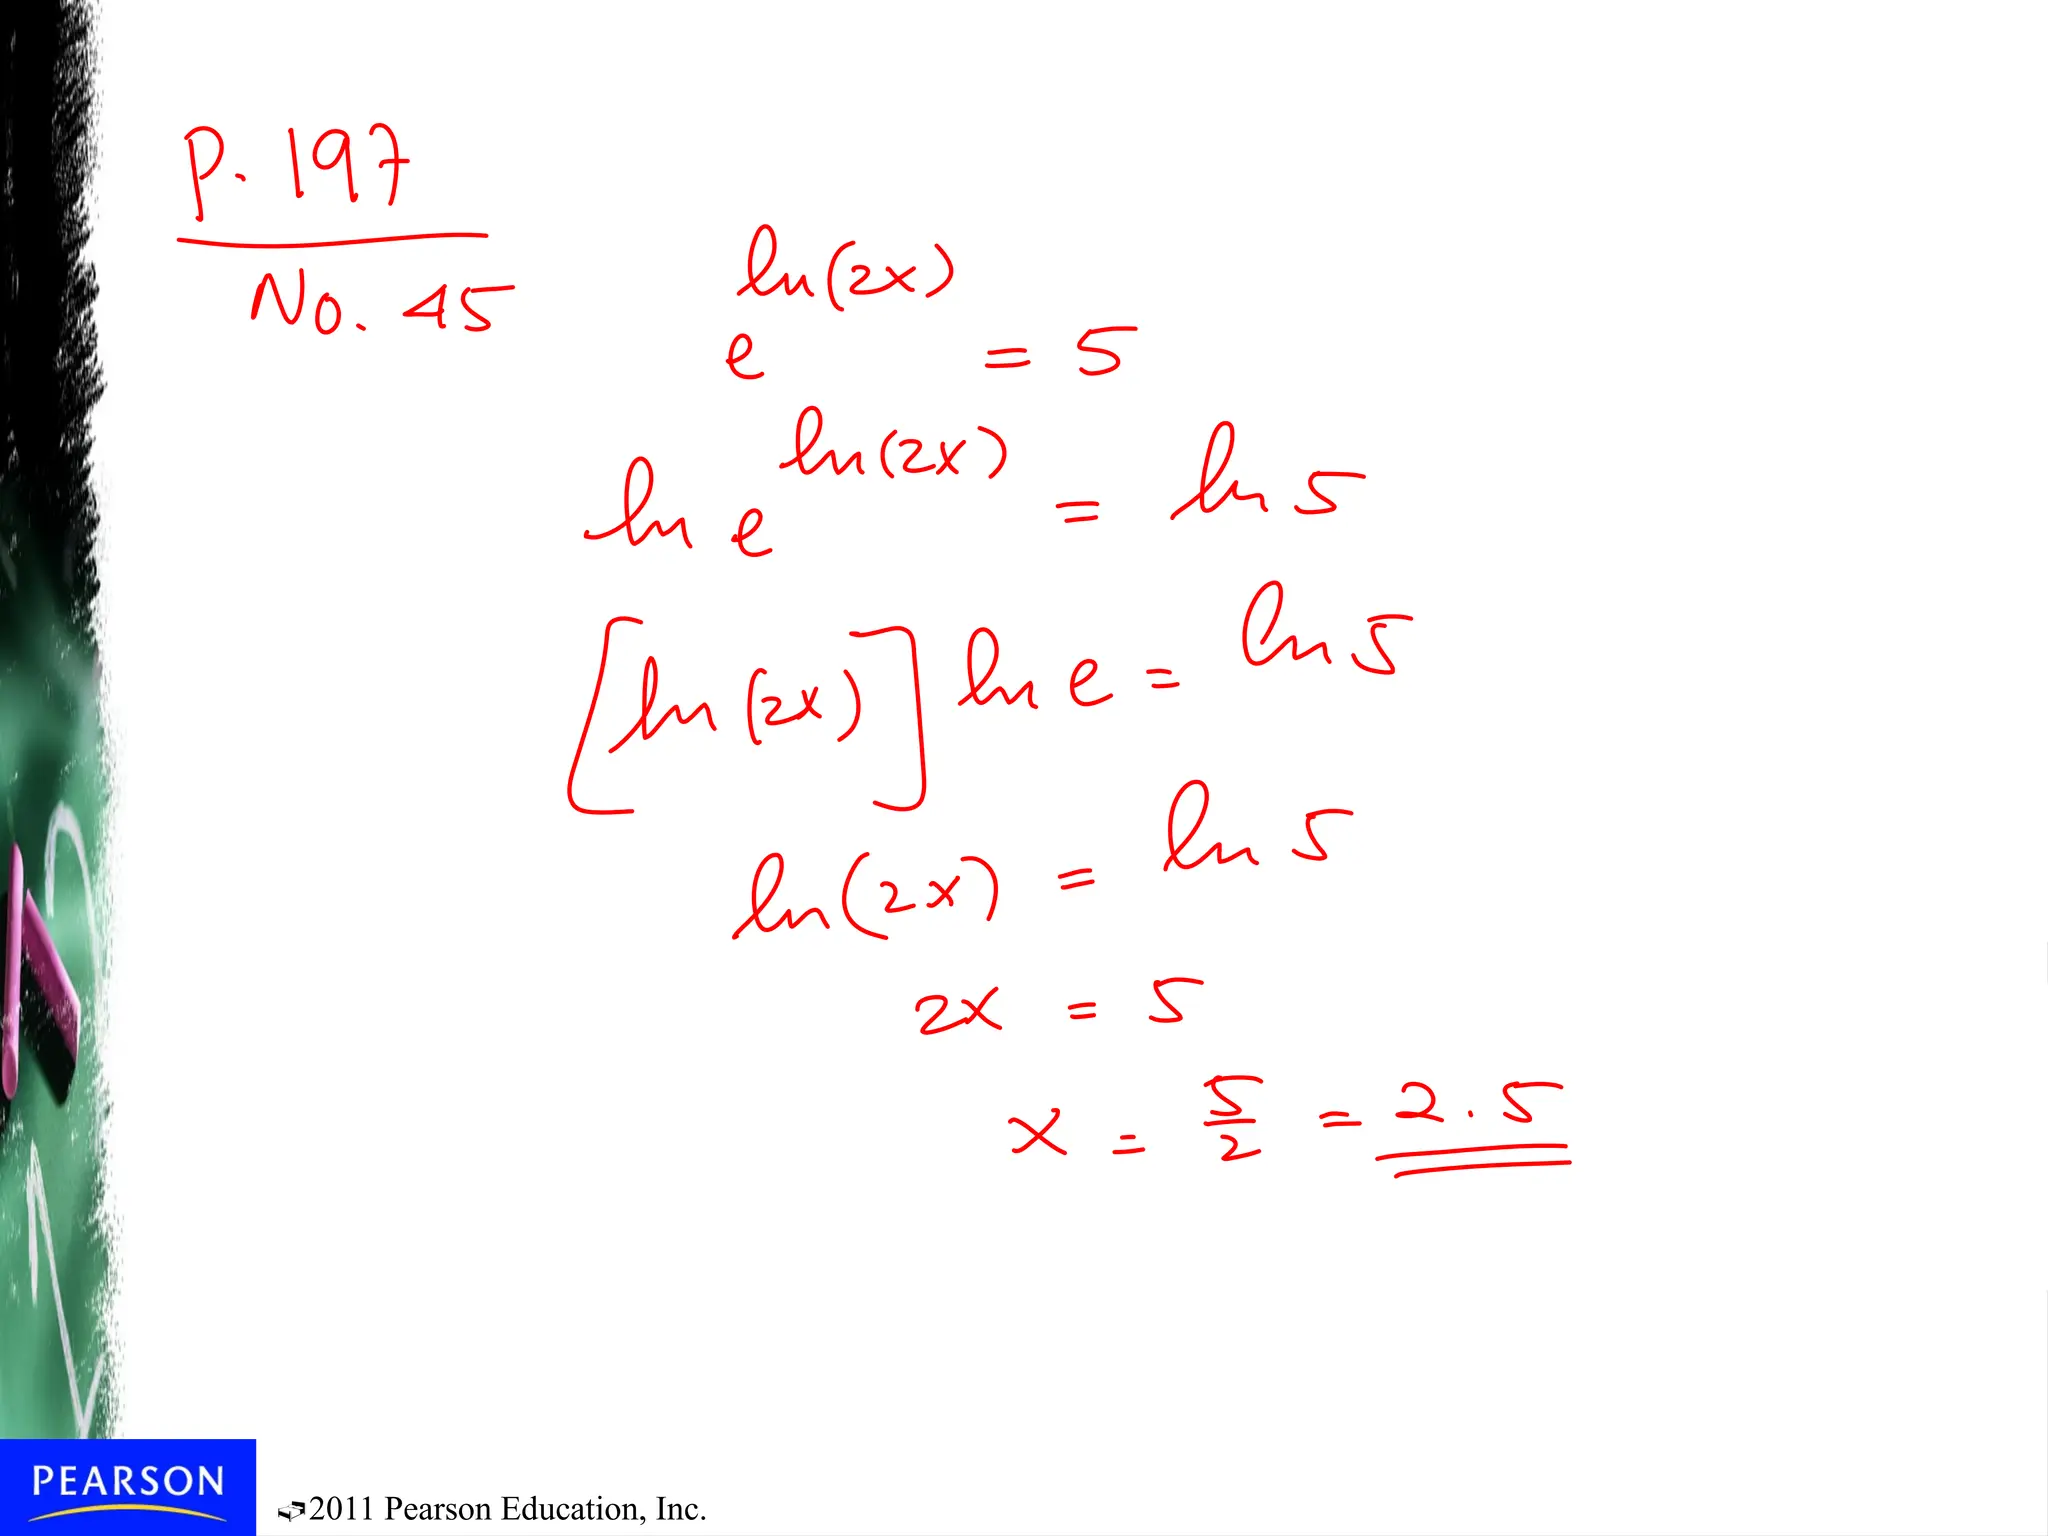 P. 197
No. 45
e^ln(2x) = 5
ln e^ln(2x) = ln 5
[ln(2x)] ln e = ln 5
ln(2x) = ln 5
2x = 5
x = 5/2 = 2.5
PEARSON
2011 Pearson Education, Inc.